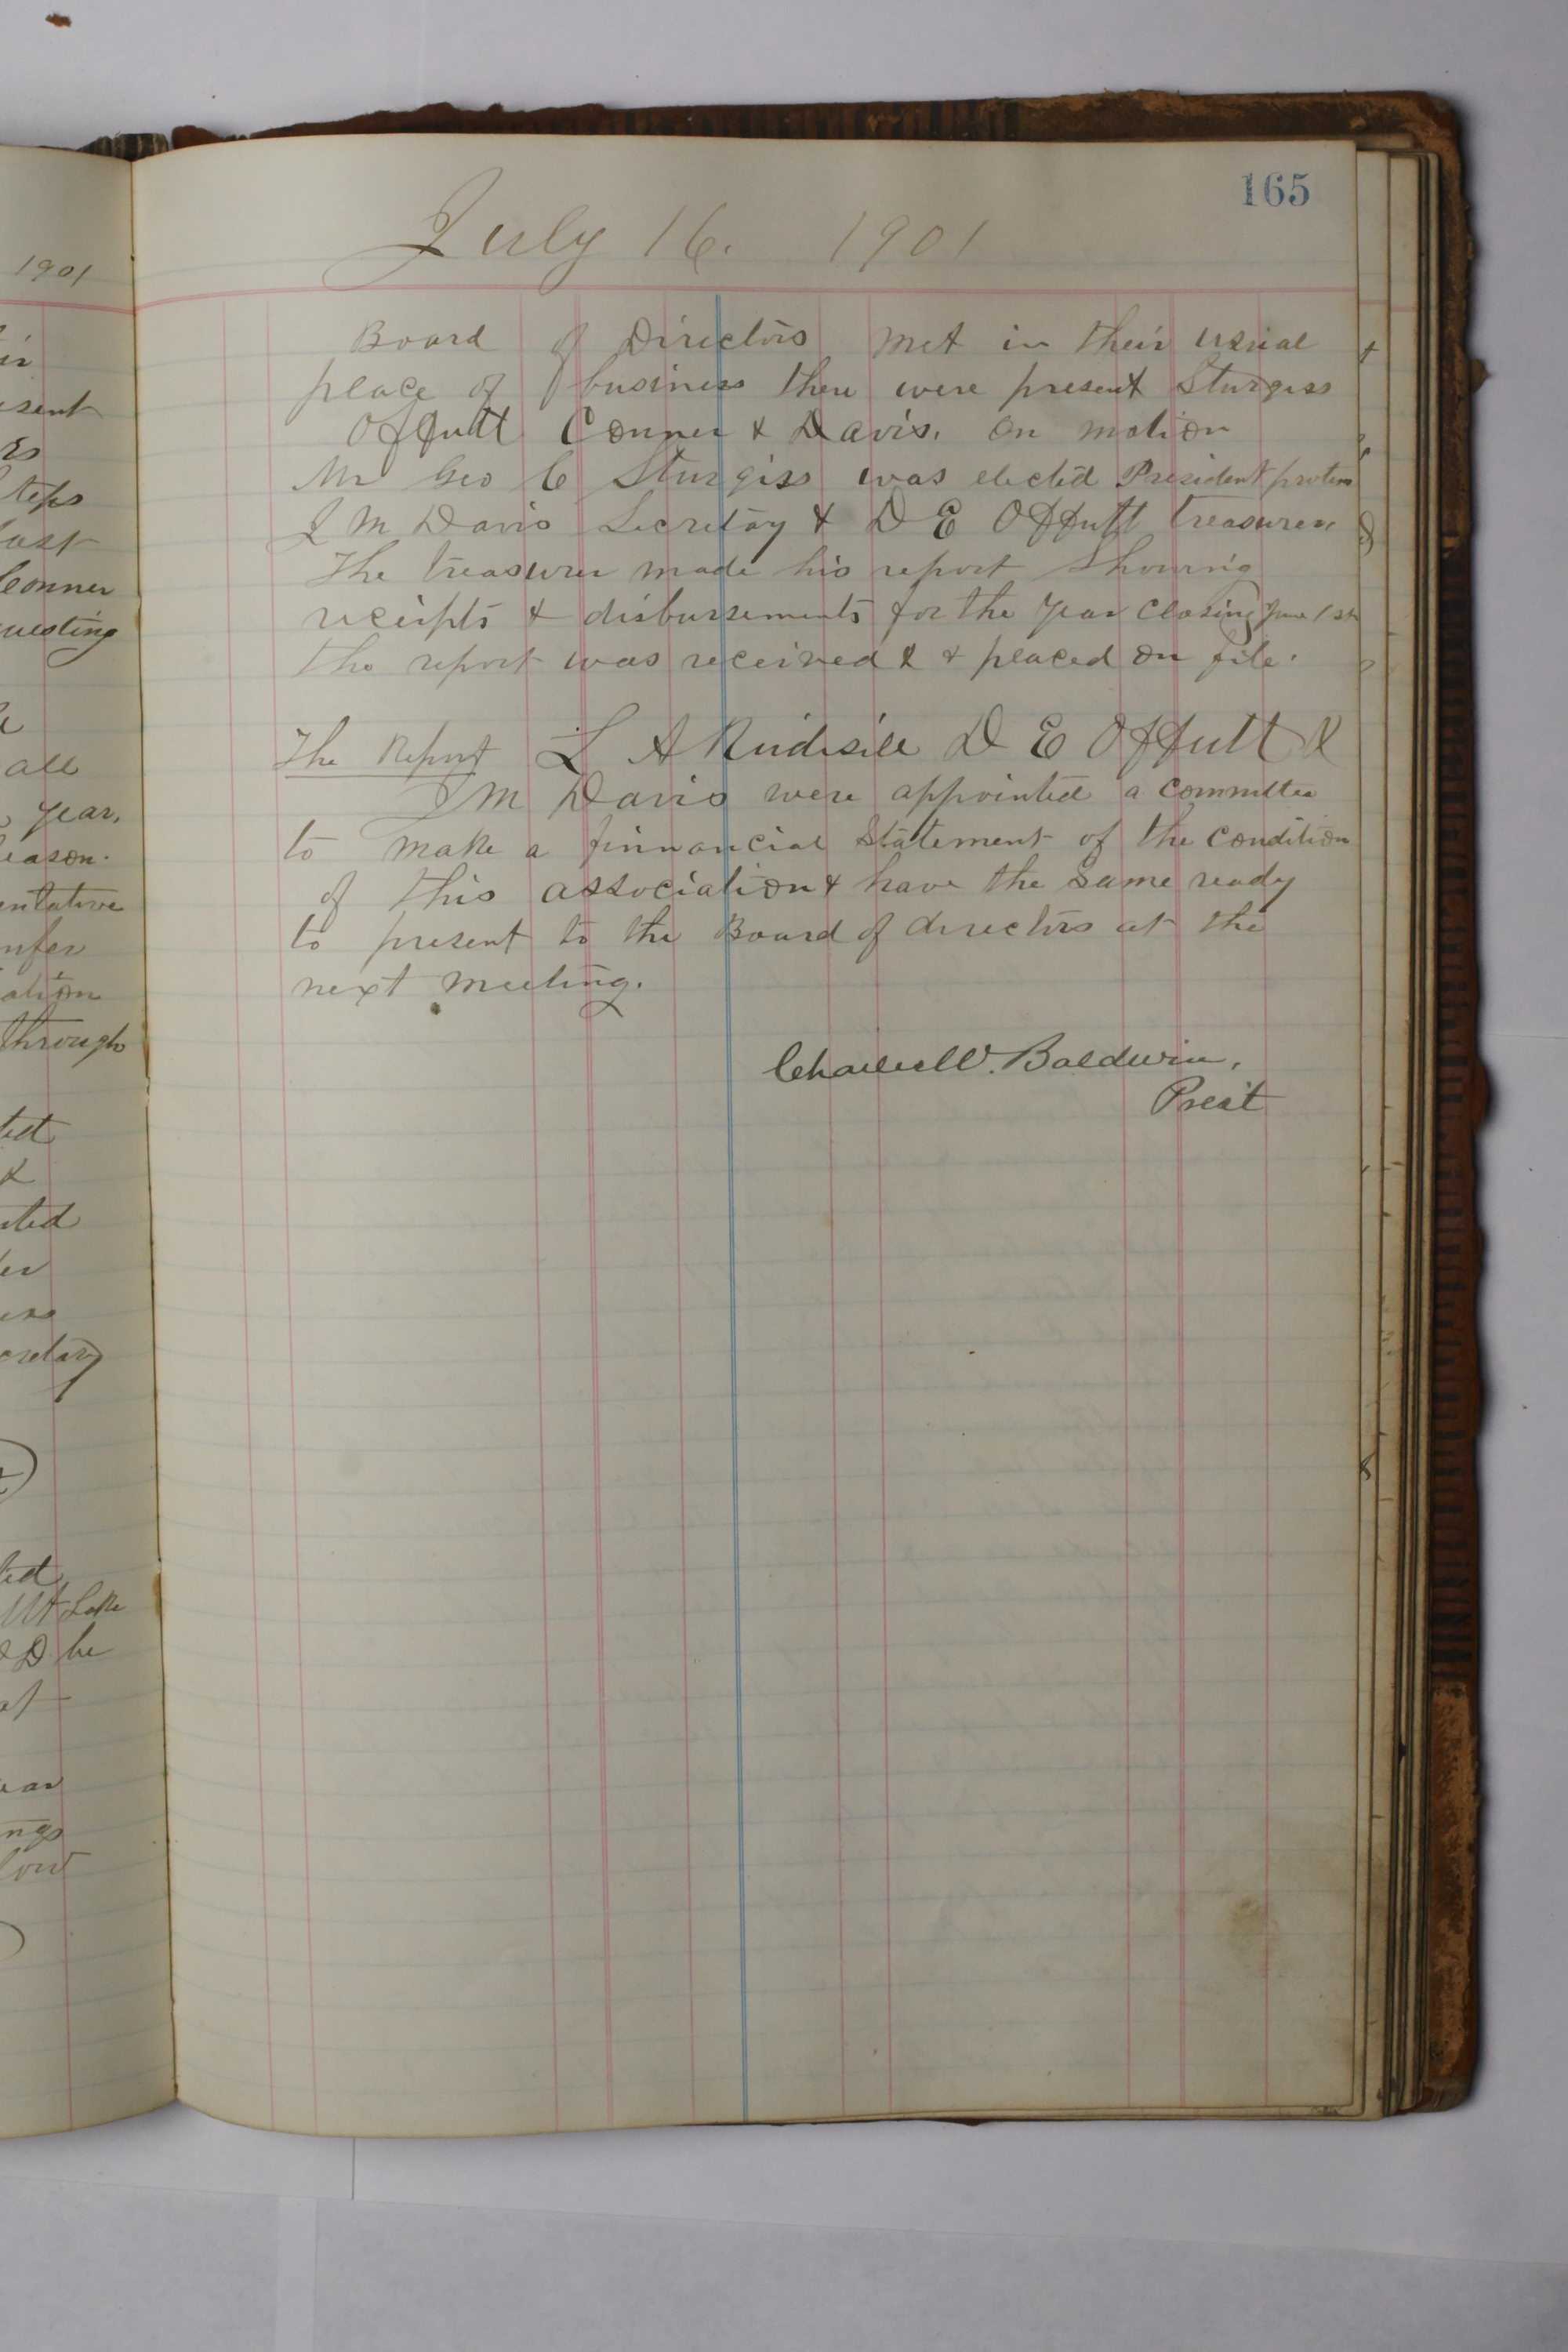 1901
ir
esent
rs
teps
ast
Conner
uesting
all
year,
eason.
entative
nfer
iation
through
ted
&
ated
er
cretary
ted
Mt Lake
& D he
at
ear
ngs
low
165
July 16. 1901
Board of Directors met in their usual
place of business there were present Sturgiss
Offutt Conner & Davis. on motion
Mr Geo C Sturgiss was elected President protem
J M Davis Secretary & D E Offutt treasurer,
The treasurer made his report showing
receipts & disbursements for the year closing June 1st
the report was received & & placed on file.
The Report L A Rudisill D E Offutt &
J M Davis were appointed a committee
to make a finnancial statement of the condition
of this association & have the same ready
to present to the Board of directors at the
next meeting.
Charles W. Baldwin,
Prest